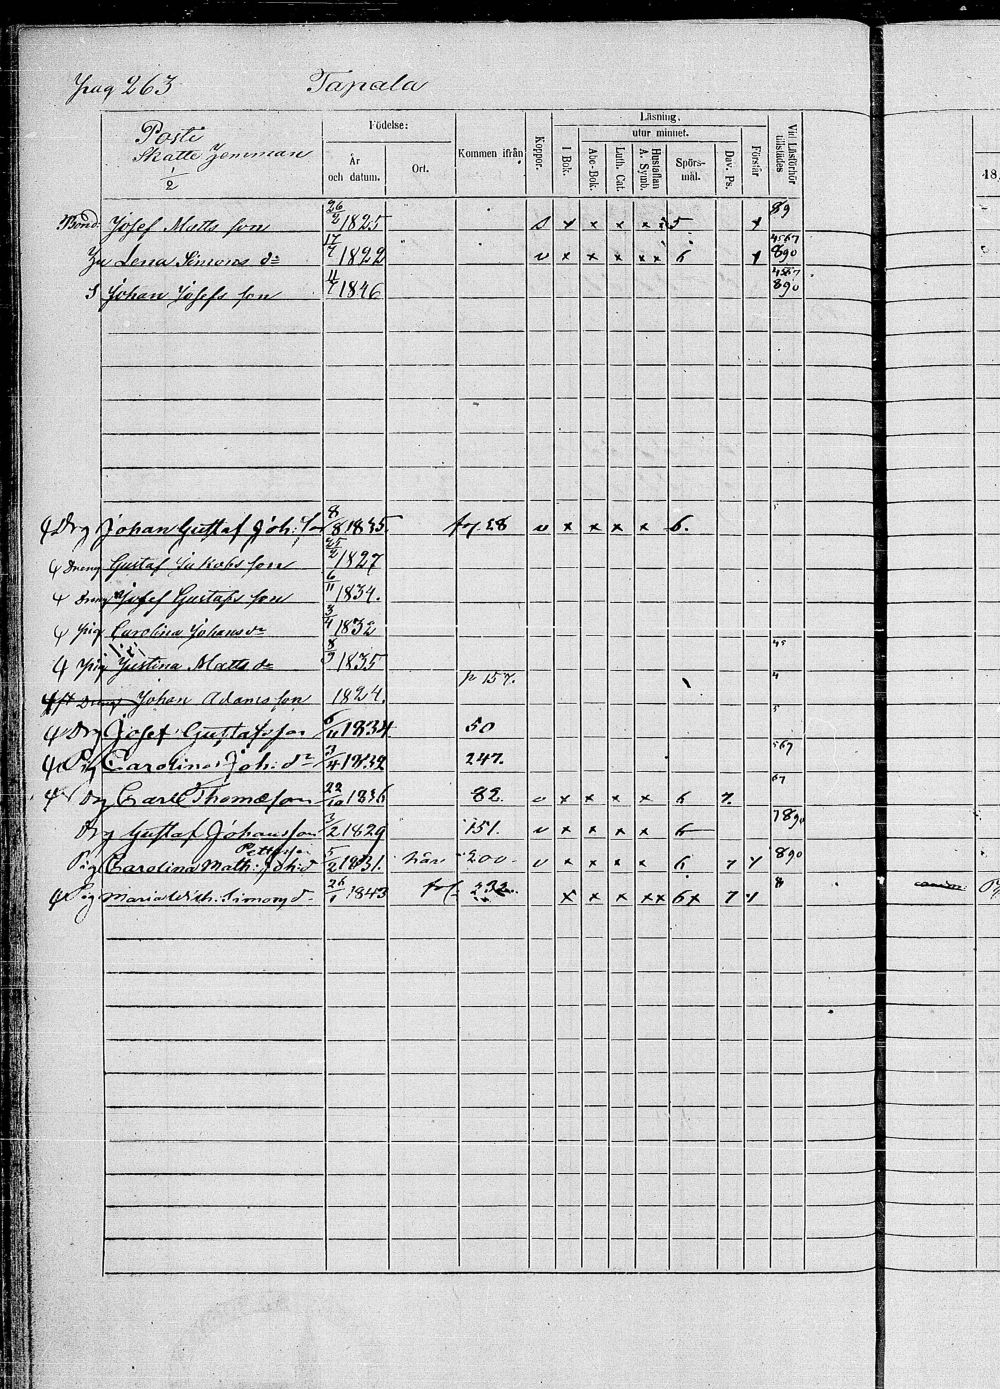 Pag 263 Tapala
Posti
Skatte Hemman
1/2
Födelse:
År och datum.
Ort.
Kommen ifrån
Koppor.
Läsning.
utur minnet.
I Bok.
Abc-Bok.
Luth. Cat.
Hustaflan A. Symb.
Spörsmål.
Dav. Ps.
Förstår
Vid Läsförhör tillstädes
18
Bond. Josef Matts son 26/2 1825 s x x x x x 5 x 89
Hu Lena Simons dr 17/7 1822 v x x x x x 6 x 4567 890
S Johan Josefs son 11/7 1846 4567 890
Drg Johan Gustaf Joh: son 8/8 1835 28 v x x x x 6.
Dreng Gustaf Jakobs son 25/2 1827
Dreng Josef Gustafs son 6/11 1834.
Pig Carolina Johans dr 3/4 1832
Pig Justina Matts dr 8/9 1835 45
Dreng Johan Adams son 1824. p 157. 4
Drg Josef Gustafsson 6/11 1834 50 5
Pig Carolina Joh: dr 3/4 1832 247. 567
Drg Carl Thomasson 22/10 1836 82 v x x x x 6 7. 67
Drg Gustaf Johansson 3/2 1829 151. v x x x x 6 7890
Pig Carolina Math. Joh: d 5/2 1831. här 200 v x x x x 6 7 7 890
Pig Maria Wilh. Simons d. 26/1 1843 232 x x x x x 6 x 7 7 8